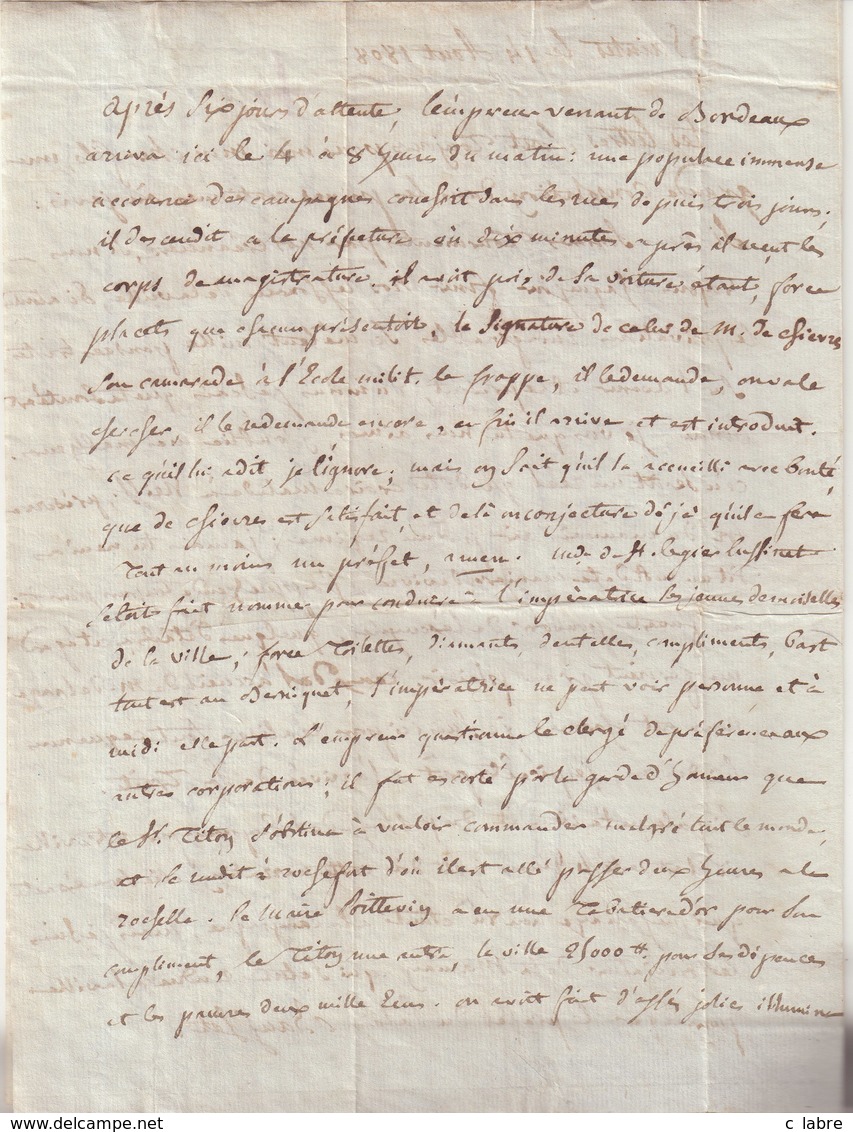 après six jours d'attente, l'empreur venant de Bordeaux
arriva ici le 4 à 8 heures du matin: une populace immense
accourue des campagnes couchoit dans les rues depuis trois jours,
il descendit a la préfeture où dix minutes après il reçut les
corps de magistrature. il avoit pris, de sa voiture étant, force
placets que chacun présentoit, la signature de celui de M. de chievres
son camarade à l'Ecole milit. le frappe, il le demande, on va le
chercher, il le redemande encore, en fin il arrive et est introduit.
ce qu'il lui a dit, je l'ignore; mais on sait qu'il l'a accueilli avec bonté,
que de chievres est satisfait, et de là on conjecture déjà qu'il en fera
tout au moins un préfet, amen. md. de St. legier lussinet
s'étoit fait nommer pour conduire à l'impératrice les jeunes demoiselles
de la ville; force toilettes, diamants, dentelles, compliments, bast
tout est au berniquet, l'impératrice ne peut voir personne et à
midi elle part. L'empreur questionna le clergé de préférence aux
autres corporations; il fut escorté par la garde d'honneur que
le Sr. Titon s'obstina à vouloir commander malgré tout le monde,
et se rendit à rochefort d'où il est allé passer deux heures a la
rochelle. Le maire Poittevin a eu une tabatiere d'or pour son
compliment, le Titon une autre, la ville 25000 ₶. pour ses dépences
et les pauvres deux mille Ecus. on avoit fait d'assés jolies illumina
c labre